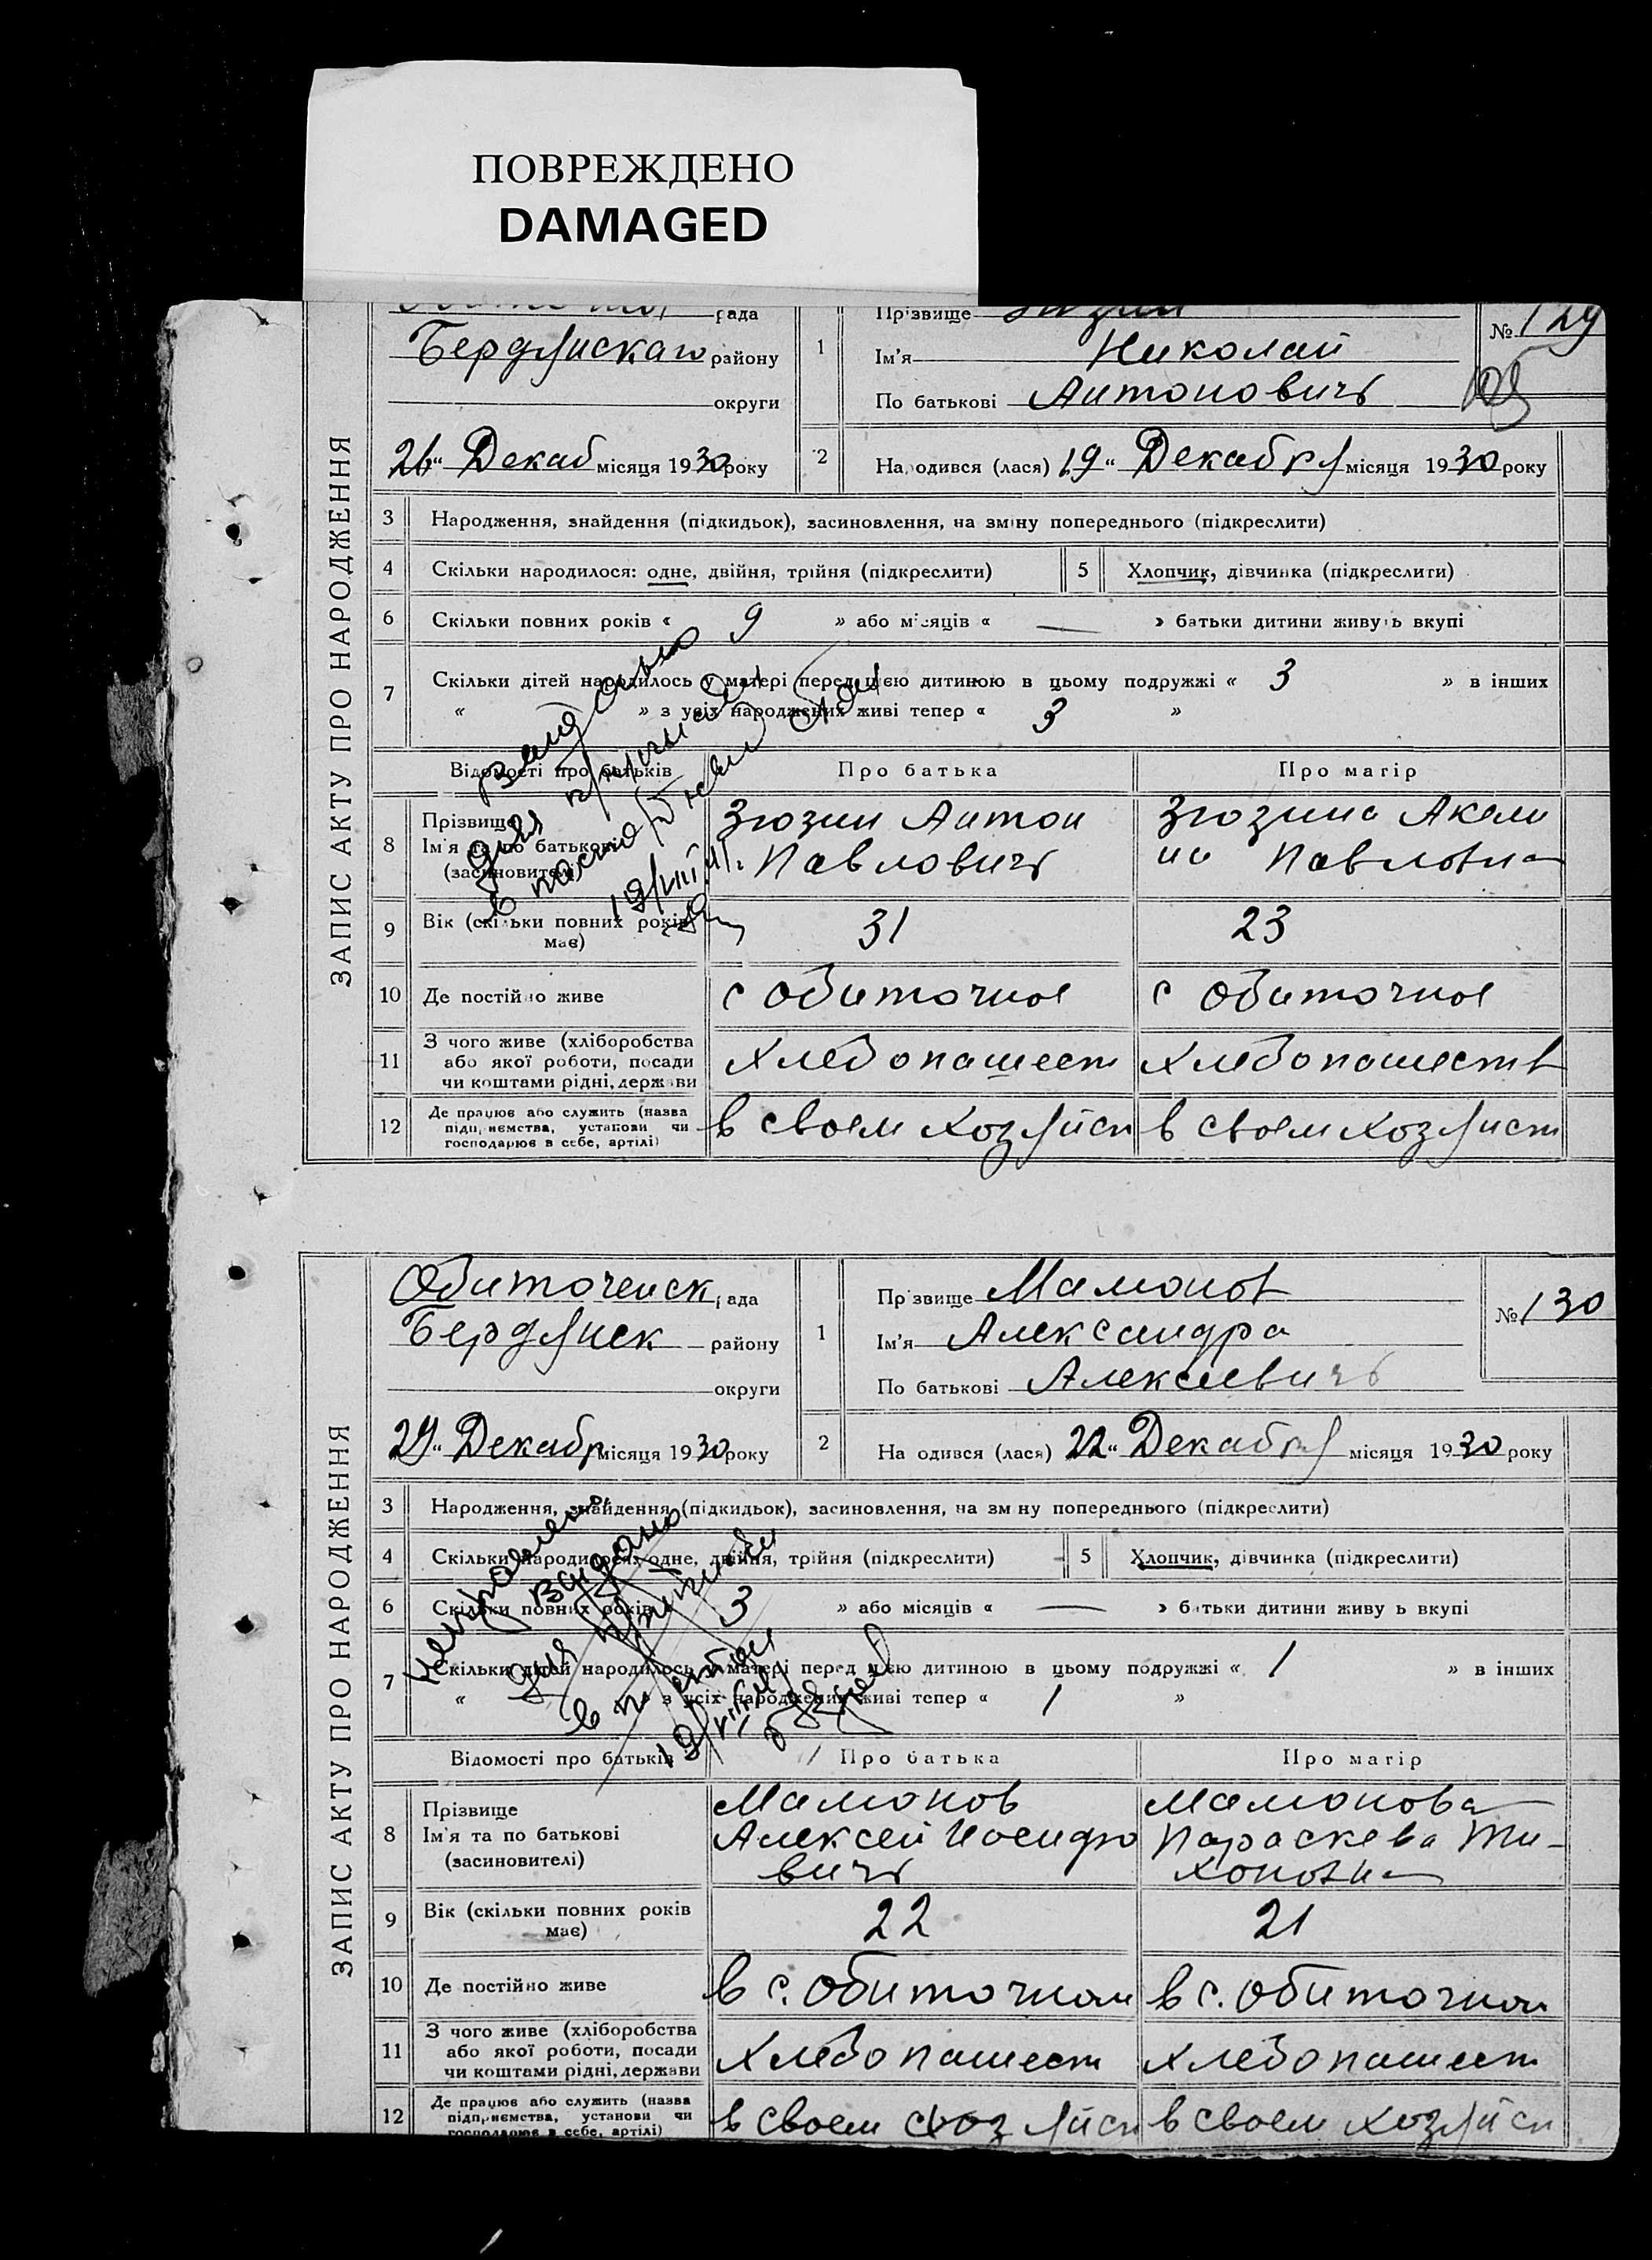 ПОВРЕЖДЕНО
DAMAGED
ЗАПИС АКТУ ПРО НАРОДЖЕННЯ
рада
Бердянскаго району
округи
26 " Декаб місяця 1930 року
1
Прізвище
Ім'я Николай
По батькові Антоновичъ
№ 129
2
Народився (лася) 19 " Декабря місяця 1930 року
3 Народження, знайдення (підкидьок), засиновлення, на зміну попереднього (підкреслити)
4 Скільки народилося: одне, двійня, трійня (підкреслити) 5 Хлопчик, дівчинка (підкреслити)
6 Скільки повних років « 9 » або місяців « — » батьки дитини живуть вкупі
7 Скільки дітей народилось у матері перед цією дитиною в цьому подружжі « 3 » в інших
« » з усіх народжених живі тепер « 3 »
Видано
для
19/VIII 41 г.
Відомості про батьків Про батька Про матір
8 Прізвище Зюзин Антон Зюзина Акели
Ім'я та по батькові Павловичъ на Павловна
(засиновителі)
9 Вік (скільки повних років 31 23
має)
10 Де постійно живе с Обиточное с Обиточное
11 З чого живе (хліборобства
або якої роботи, посади Хлебопашест Хлебопашеств
чи коштами рідні, держави
12 Де працює або служить (назва
підприємства, установи чи в своем хозяйст в своем хозяист
господарює в себе, артілі)
ЗАПИС АКТУ ПРО НАРОДЖЕННЯ
Обиточенск рада
Бердянск району
округи
27 " Декабр місяця 1930 року
1
Прізвище Мамонов
Ім'я Александра
По батькові Алексеевичъ
№ 130
2
На одився (лася) 22 " Декабря місяця 1930 року
3 Народження, знайдення (підкидьок), засиновлення, на зм ну попереднього (підкреслити)
4 Скільки народилося: одне, двійня, трійня (підкреслити) 5 Хлопчик, дівчинка (підкреслити)
6 Скільки повних років 3 » або місяців « — » батьки дитини живу ь вкупі
7 Скільки дітей народилось у матері перед цією дитиною в цьому подружжі « 1 » в інших
« » з усіх народжених живі тепер « 1 »
Видано
для
Відомості про батьків Про батька Про матір
8 Прізвище Мамонов Мамонова
Ім'я та по батькові Алексей Иосифо Параскева Ти-
(засиновителі) вичъ хоновна
9 Вік (скільки повних років 22 21
має)
10 Де постійно живе в с. Обиточном в с. Обиточном
11 З чого живе (хліборобства
або якої роботи, посади Хлебопашест Хлебопашест
чи коштами рідні, держави
12 Де працює або служить (назва
підприємства, установи чи в своем хозяйст в своем хозяйст
господарює в себе, артілі)